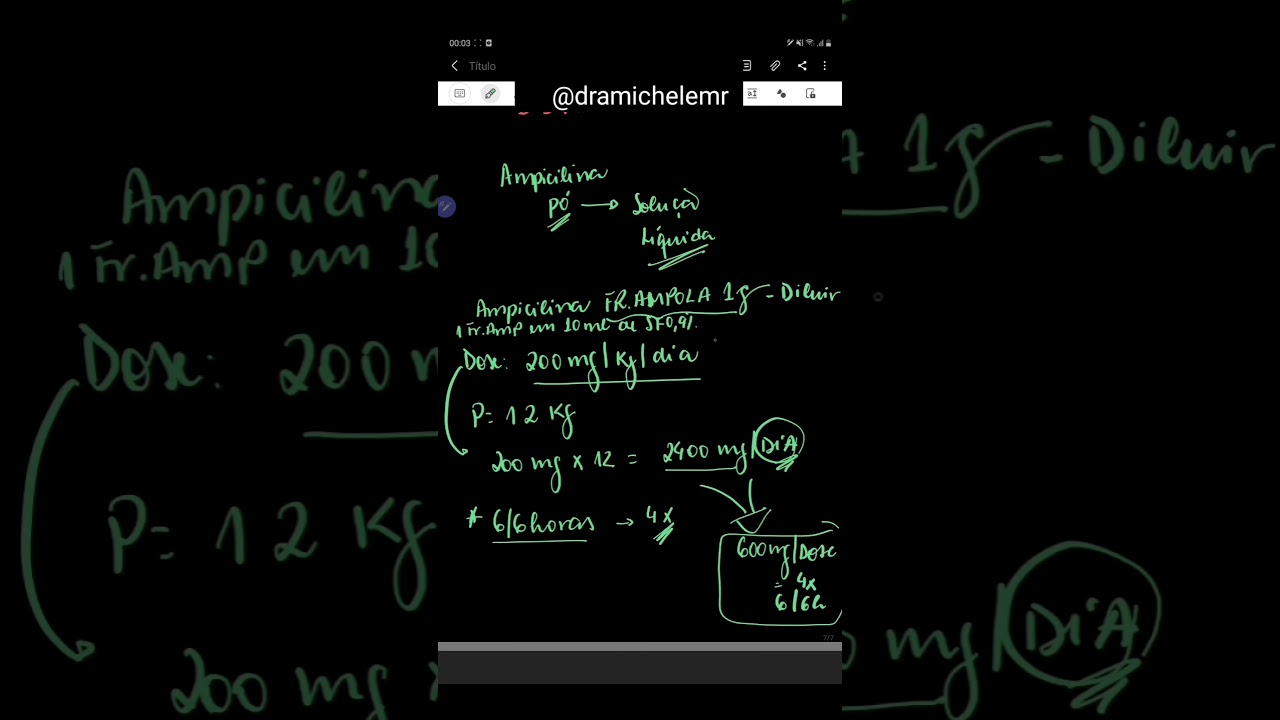 00:03
Título
@dramichelemr
Ampicilina
PÓ → Solução
Líquida
Ampicilina FR.AMPOLA 1g - Diluir
1 Fr.Amp em 10ml de SF0,9%.
Dose: 200 mg/Kg/dia
P= 12 Kg
200 mg x 12 = 2400 mg/DIA
* 6/6horas → 4x
600mg/Dose
= 4x
6/6h
7/7